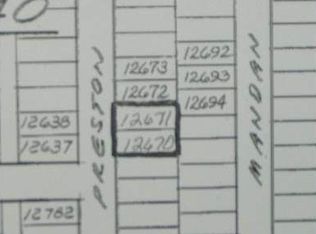 PRESTON
MANDAN
12692
12673
12693
12672
12694
12638
12671
12637
12670
12762